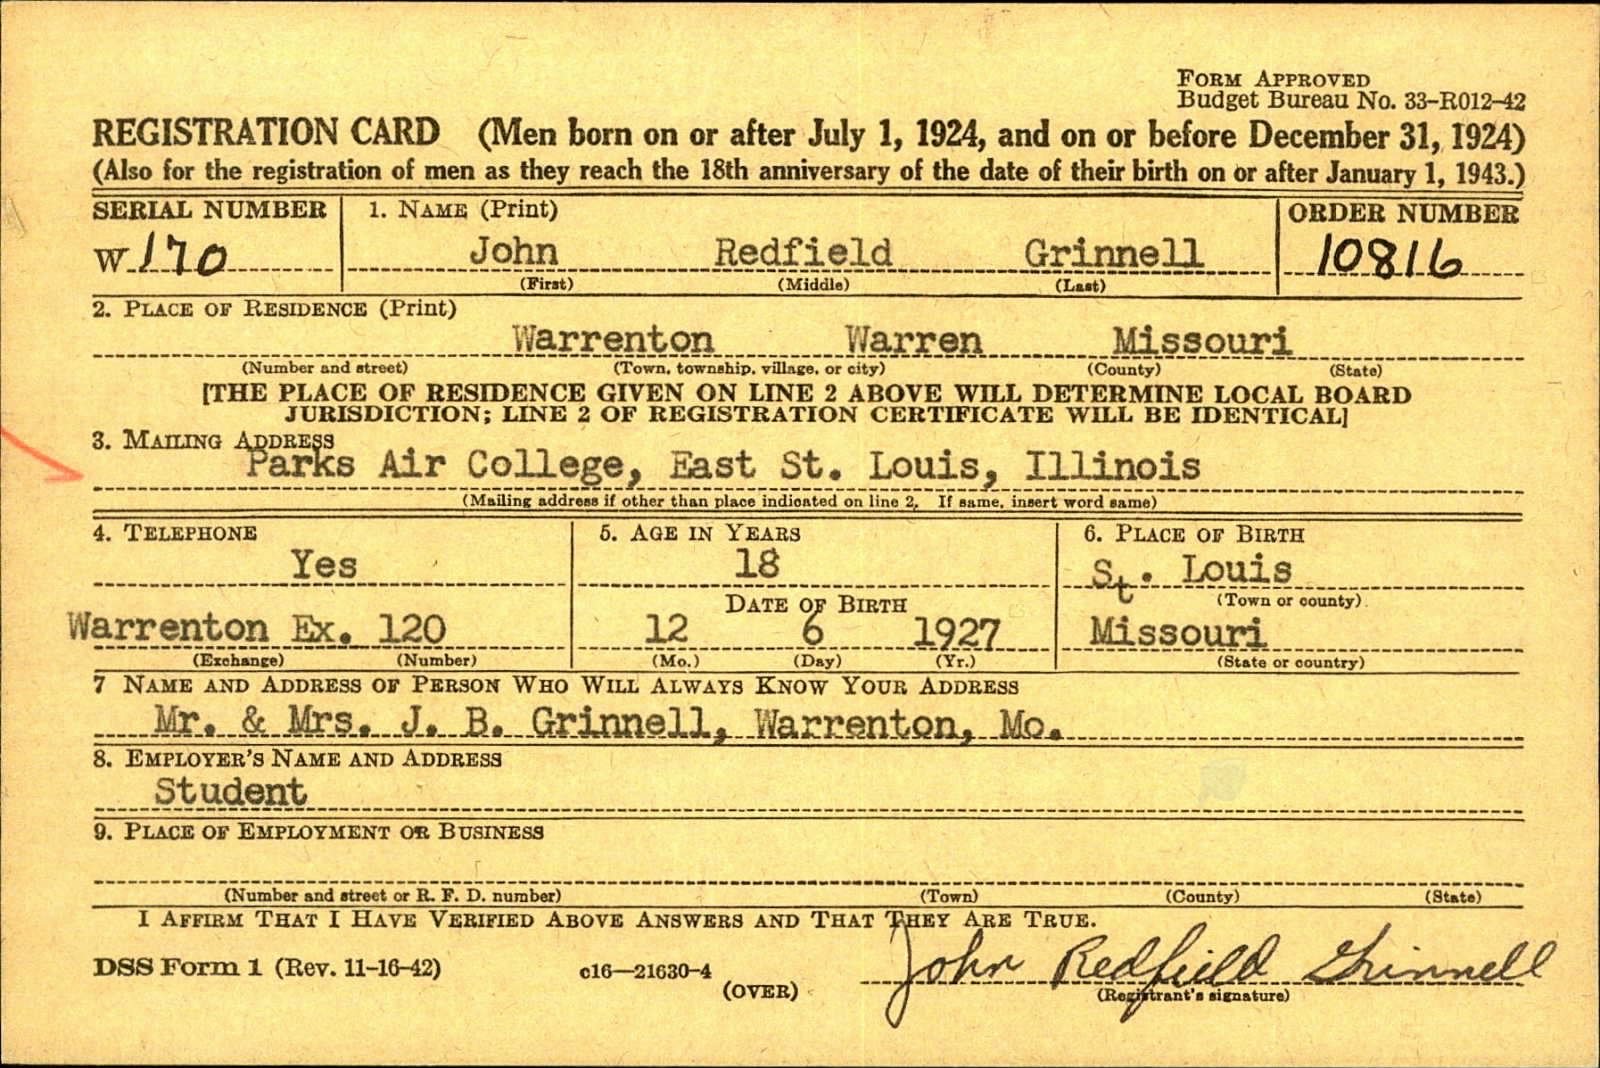 FORM APPROVED
Budget Bureau No. 33-R012-42
REGISTRATION CARD (Men born on or after July 1, 1924, and on or before December 31, 1924)
(Also for the registration of men as they reach the 18th anniversary of the date of their birth on or after January 1, 1943.)
SERIAL NUMBER 1. NAME (Print) ORDER NUMBER
W 170 John Redfield Grinnell 10816
(First) (Middle) (Last)
2. PLACE OF RESIDENCE (Print)
Warrenton Warren Missouri
(Number and street) (Town, township, village, or city) (County) (State)
[THE PLACE OF RESIDENCE GIVEN ON LINE 2 ABOVE WILL DETERMINE LOCAL BOARD
JURISDICTION; LINE 2 OF REGISTRATION CERTIFICATE WILL BE IDENTICAL]
3. MAILING ADDRESS
Parks Air College, East St. Louis, Illinois
(Mailing address if other than place indicated on line 2. If same, insert word same)
4. TELEPHONE 5. AGE IN YEARS 6. PLACE OF BIRTH
Yes 18 St. Louis
DATE OF BIRTH (Town or county)
Warrenton Ex. 120 12 6 1927 Missouri
(Exchange) (Number) (Mo.) (Day) (Yr.) (State or country)
7 NAME AND ADDRESS OF PERSON WHO WILL ALWAYS KNOW YOUR ADDRESS
Mr. & Mrs. J. B. Grinnell, Warrenton, Mo.
8. EMPLOYER'S NAME AND ADDRESS
Student
9. PLACE OF EMPLOYMENT OR BUSINESS
(Number and street or R. F. D. number) (Town) (County) (State)
I AFFIRM THAT I HAVE VERIFIED ABOVE ANSWERS AND THAT THEY ARE TRUE.
DSS Form 1 (Rev. 11-16-42) c16—21630-4 John Redfield Grinnell
(OVER) (Registrant's signature)